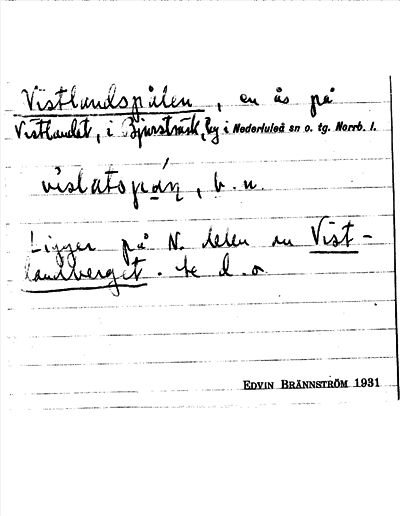 Vistlandspålen, en ås på
Vistlandet, i Bjursträsk, by i Nederluleå sn o. tg. Norrb. l.
, b. n.
Ligger på N. delen av Vist-
landberget. se d. o.
EDVIN BRÄNNSTRÖM 1931